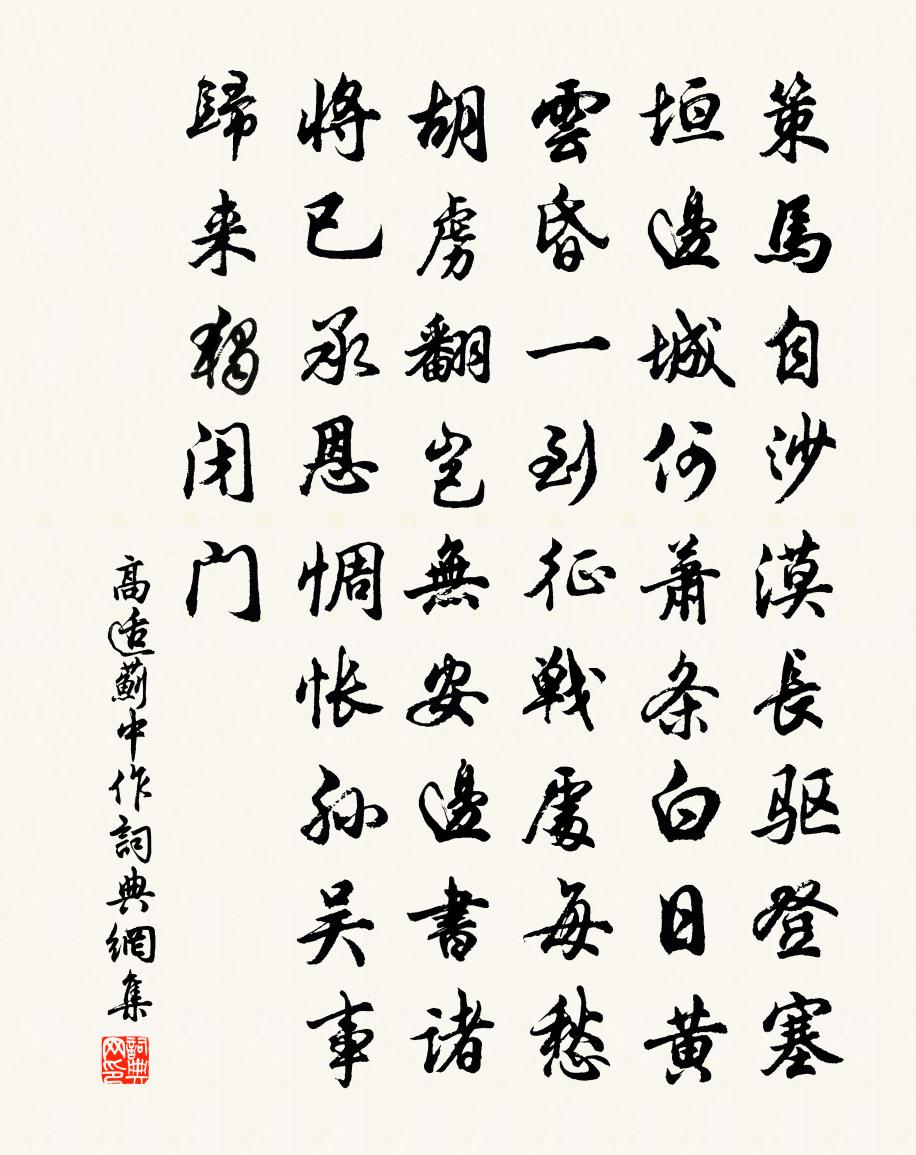 策馬自沙漠長驱登塞
垣邊城何蕭条白日黄
雲昏一到征戦處每愁
胡虜翻豈無安邊書诸
將已承恩惆怅孙吴事
歸来独闭门
高适薊中作詞典網集
詞典网印